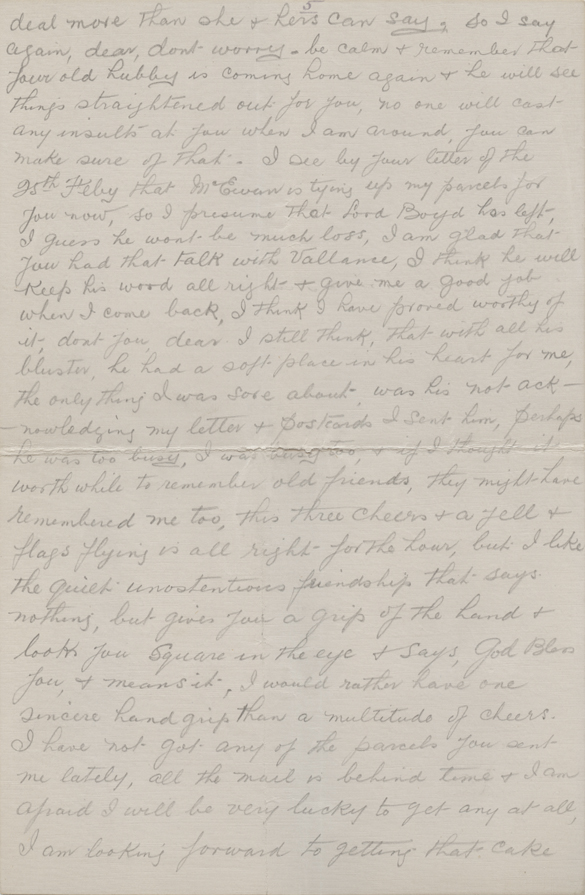 5
deal more than she & hers can say, so I say
again, dear, dont worry - be calm & remember that
your old hubby is coming home again & he will see
things straightened out for you, no one will cast
any insults at you when I am around, you can
make sure of that. I see by your letter of the
25th Feby that McEwan is tying up my parcels for
you now, so I presume that Lord Boyd has left,
I guess he wont be much loss, I am glad that
you had that talk with Vallance, I think he will
keep his word all right & give me a good job
when I come back, I think I have proved worthy of
it, dont you, dear. I still think, that with all his
bluster, he had a soft place in his heart for me,
the only thing I was sore about, was his not ack-
-nowledging my letter & postcards I sent him, perhaps
he was too busy, I was busy too, & if I thought it
worth while to remember old friends, they might have
remembered me too, this three cheers & a yell &
flags flying is all right for the hour, but I like
the quiet unostentious friendship that says
nothing, but gives you a grip of the hand &
looks you square in the eye & says, God Bless
you, & means it, I would rather have one
sincere hand grip than a multitude of cheers.
I have not got any of the parcels you sent
me lately, all the mail is behind time & I am
afraid I will be very lucky to get any at all,
I am looking forward to getting that cake